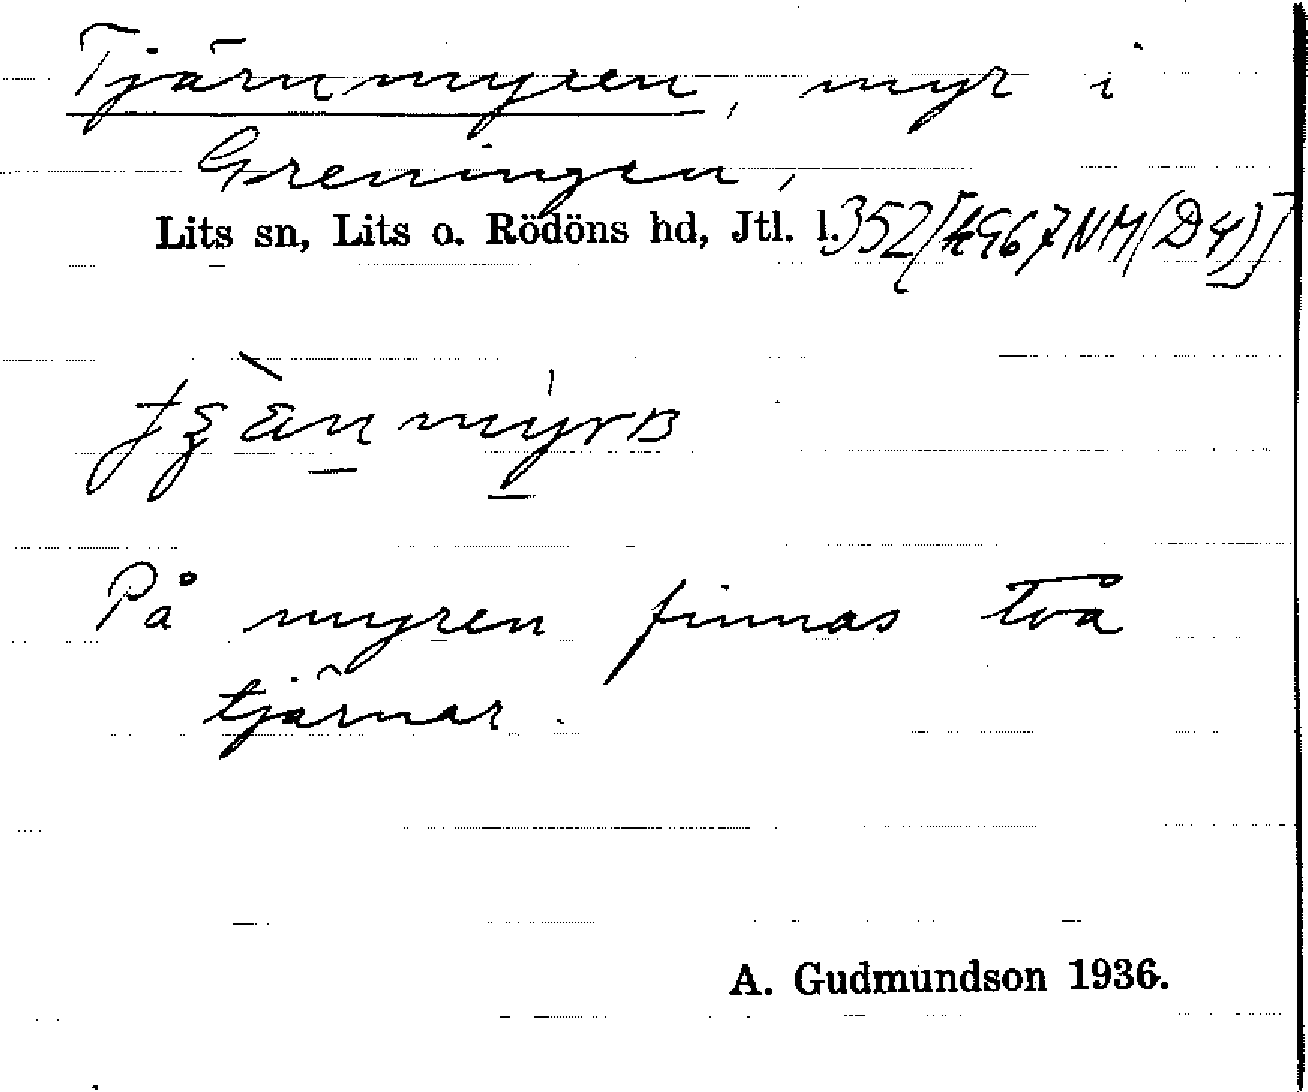 Tjärnmyren, myr i
Greningen,
Lits sn, Lits o. Rödöns hd, Jtl. l.
På myren finnas två
tjärnar.
A. Gudmundson 1936.